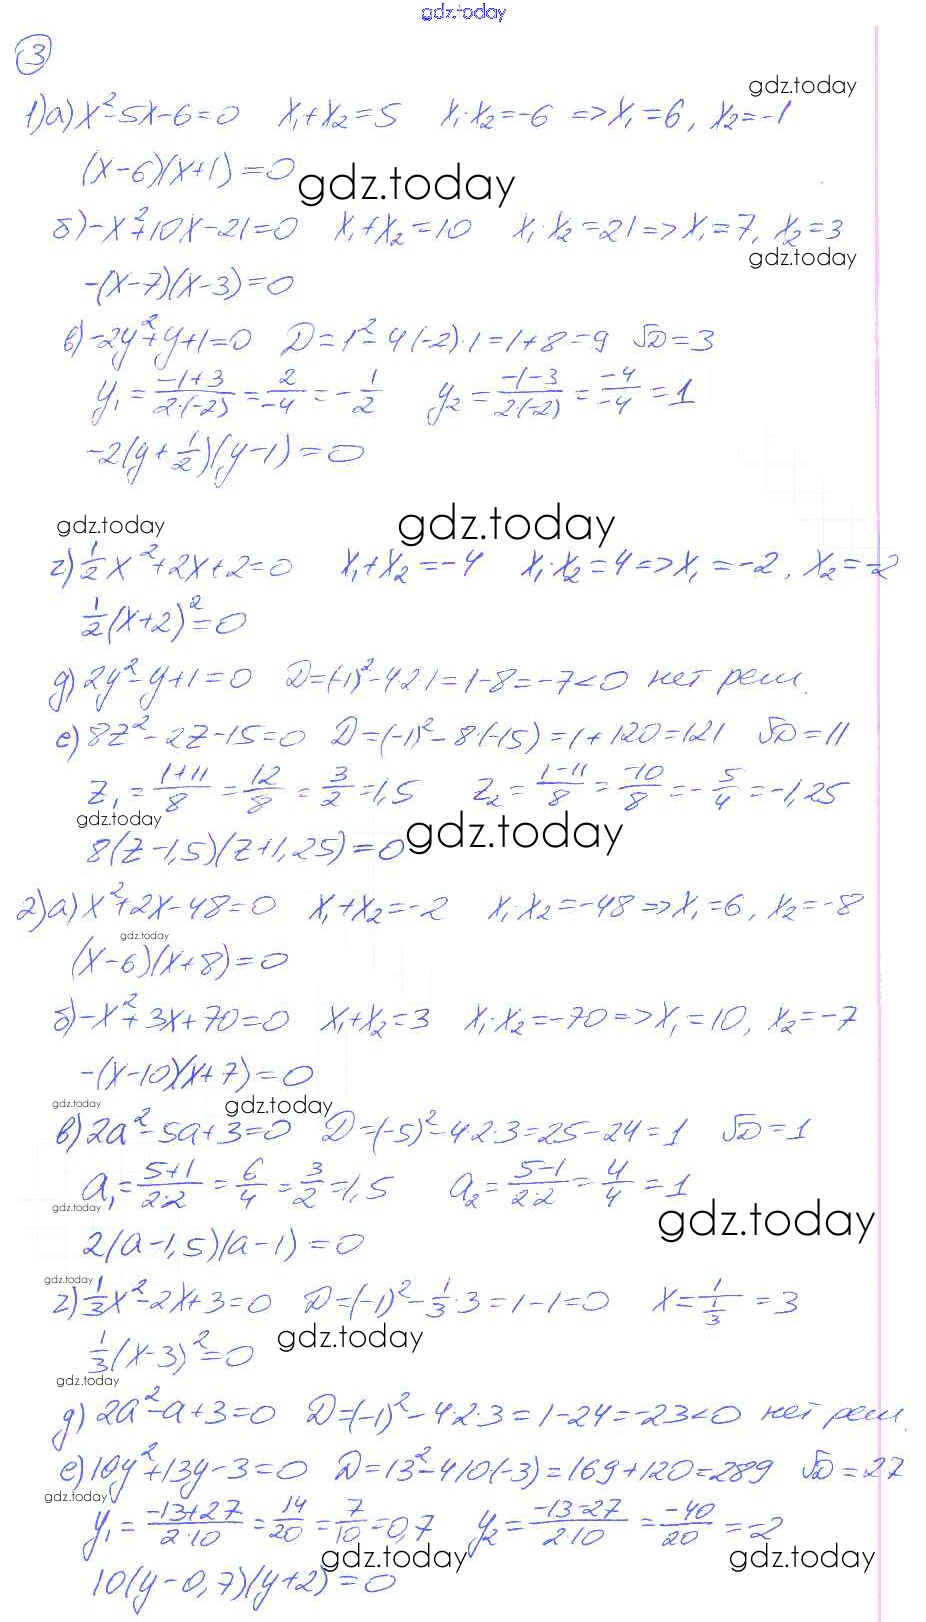 gdz.today
3
gdz.today
1)а) x²-5x-6=0 x₁+x₂=5 x₁·x₂=-6 => x₁=6, x₂=-1
(x-6)(x+1)=0
gdz.today
б) -x²+10x-21=0 x₁+x₂=10 x₁·x₂=21 => x₁=7, x₂=3
gdz.today
-(x-7)(x-3)=0
в) -2y²+y+1=0 D=1²-4(-2)·1=1+8=9 √D=3
y₁=(-1+3)/(2·(-2))=2/-4=-1/2 y₂=(-1-3)/(2(-2))=-4/-4=1
-2(y+1/2)(y-1)=0
gdz.today gdz.today
г) 1/2x²+2x+2=0 x₁+x₂=-4 x₁·x₂=4 => x₁=-2, x₂=-2
1/2(x+2)²=0
д) 2y²-y+1=0 D=(-1)²-4·2·1=1-8=-7<0 нет реш.
е) 8z²-2z-15=0 D=(-1)²-8·(-15)=1+120=121 √D=11
z₁=(1+11)/8=12/8=3/2=1,5 z₂=(1-11)/8=-10/8=-5/4=-1,25
gdz.today gdz.today
8(z-1,5)(z+1,25)=0
2)а) x²+2x-48=0 x₁+x₂=-2 x₁·x₂=-48 => x₁=6, x₂=-8
gdz.today
(x-6)(x+8)=0
б) -x²+3x+70=0 x₁+x₂=3 x₁·x₂=-70 => x₁=10, x₂=-7
-(x-10)(x+7)=0
gdz.today gdz.today
в) 2a²-5a+3=0 D=(-5)²-4·2·3=25-24=1 √D=1
a₁=(5+1)/(2·2)=6/4=3/2=1,5 a₂=(5-1)/(2·2)=4/4=1
gdz.today gdz.today
2(a-1,5)(a-1)=0
gdz.today
г) 1/3x²-2x+3=0 D=(-1)²-1/3·3=1-1=0 x=1/(1/3)=3
gdz.today
1/3(x-3)²=0
gdz.today
д) 2a²-a+3=0 D=(-1)²-4·2·3=1-24=-23<0 нет реш.
е) 10y²+13y-3=0 D=13²-4·10(-3)=169+120=289 √D=27
gdz.today
y₁=(-13+27)/(2·10)=14/20=7/10=0,7 y₂=(-13-27)/(2·10)=-40/20=-2
gdz.today gdz.today
10(y-0,7)(y+2)=0